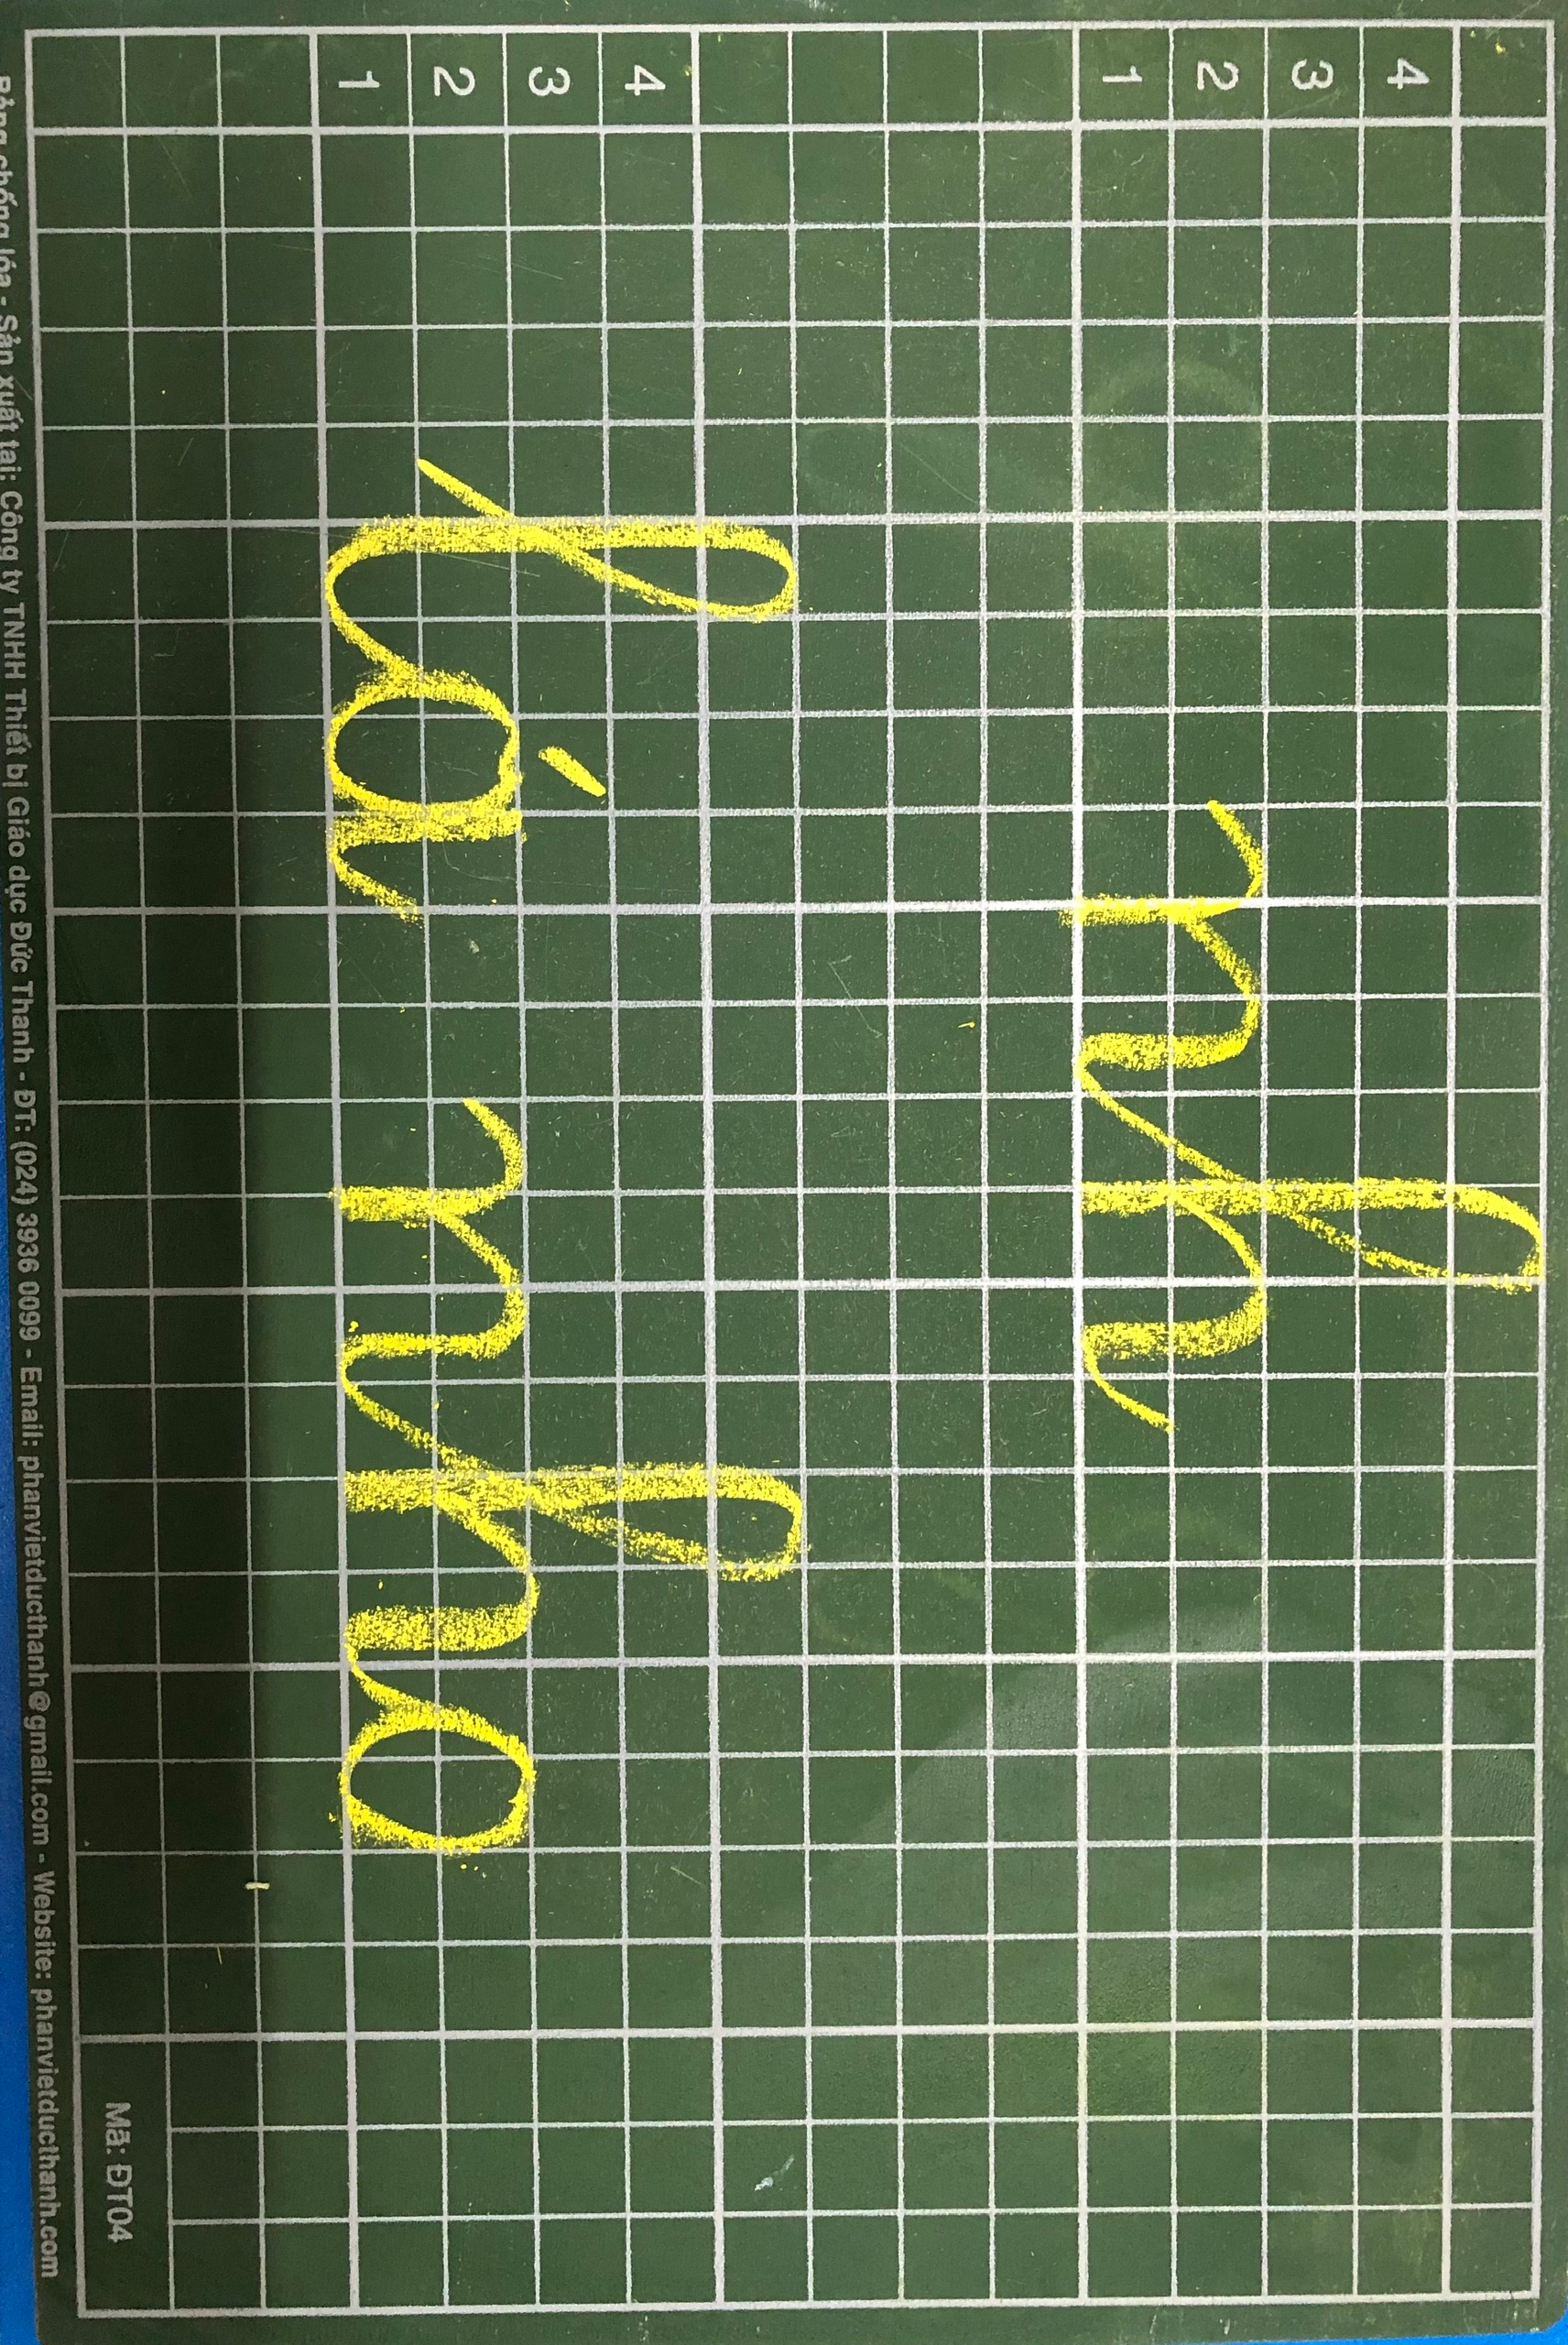 4
3
2
1
nh
4
3
2
1
lá nho
Mã: ĐT04
Bảng chống lóa - Sản xuất tại: Công ty TNHH Thiết bị Giáo dục Đức Thanh - ĐT: (024) 3936 0099 - Email: phanvietducthanh@gmail.com - Website: phanvietducthanh.com